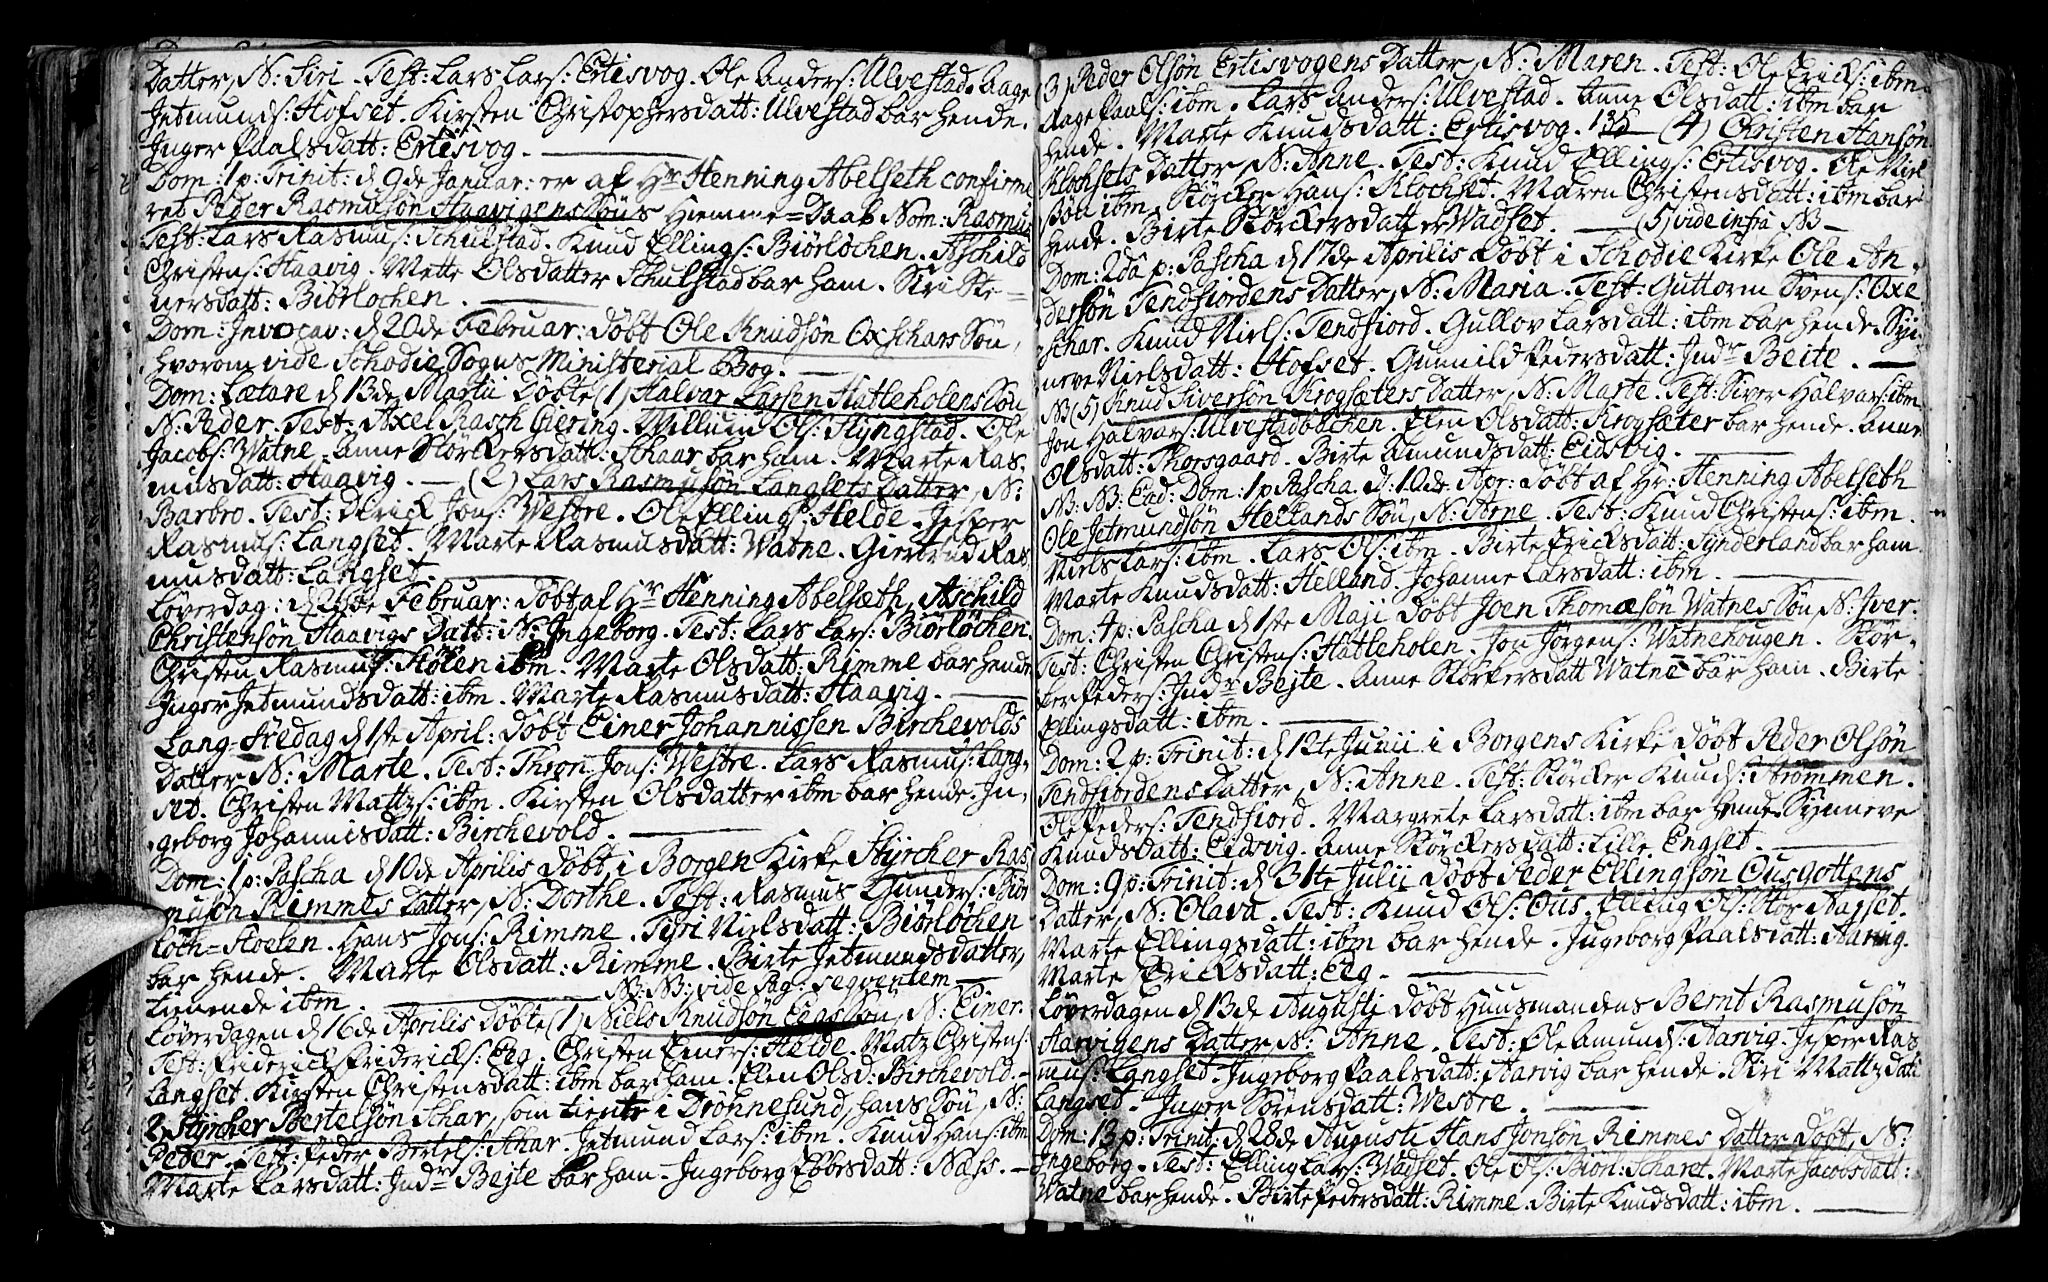 Datter, N: Siri. Test: Lars Lars: Ertisvog. Ole Anders: Ulvestad. Aage
Jetmunds: Hofset. Kirsten Christophersdatt: Ulvestad bar hende.
Inger Paalsdatt: Ertisvog.
Dom: 1 p: Trinit: d 9de Januar: er af Hr Henning Abelseth confirme
ret Peder Rasmusøn Haavigens Søns Hiemme=Daab Nom: Rasmus
Test: Lars Rasmus: Schulstad. Knud Ellings: Biørløchen. Aschild
Christens: Haavig. Mette Olsdatter Schulstad bar ham. Siri Ste=
nersdatt: Biørlochen.
Dom: Invocav: d 20de Februar: døbt Ole Knudsøn Oxschars Søn,
hvorom vide Schodie Sogns Ministerial Bog.
Dom: Lætare d 13de Martii døbte (1) Halvar Larsen Hatleholens Søn
N: Peder. Test: Axel Rasch Giering. Willum Ols: Flyngstad. Ole
Jacobs: Watne. Anne Størckersdatt: Schaar bar ham. Marte Ras
musdatt: Haavig. — (2) Lars Rasmusøn Langsets Datter, N:
Barbro. Test: Dirick Jons: Westre. Ole Ellings: Helde. Jesper
Rasmus: Langset. Marte Rasmusdatt: Watne. Giertrud Ras
musdatt: Langset
Løverdag: d 26de Februar: døbt af Hr Henning Abelsæth, Aschild
Christensøn Haavigs Datt: N: Ingeborg. Test: Lars Lars: Biørløchen.
Christen Rasmus: Stølen ibm. Marte Olsdatt: Rimme bar hende
Inger Jetmundsdatt: ibm. Marte Rasmusdatt: Haavig.
Lang=Fredag d 1ste April: døbt Einer Johannissen Birchevolds
Datter N: Marte. Test: Thron Jons: Westre. Lars Rasmus: Lang
set. Christen Mattzs: ibm. Kirsten Olsdatter ibm bar hende. In
geborg Johannisdatt: Birchevold.
Dom: 1 p: Pascha d 10de Aprilis døbt i Borgen Kirke Styrcher Ras
musøn Rimmes Datter, N: Dorthe. Test: Rasmus Gunders: Biør
løch=Stoelen. Hans Jons: Rimme. Siri Nielsdatt: Biørløchen
bar hende. Marte Olsdatt: Rimme. Birte Jetmundsdatter,
tienende ibm. NB: NB: vide Pag: seqventem
Løverdagen d 16de Aprilis døbte (1) Niels Knudsøn Eegs Søn, N: Einer.
Test: Friderick Fridericks: Eeg. Christen Einers: Helde. Matz Christens:
Langset. Kirsten Christensdatt: ibm bar ham. Elen Olsd: Birchevold.
2 Styrcher Bertelsøn Schar, som tiente i Drøhnesund, hans Søn, N:
Peder. Test: Peder Bertels: Schar. Jetmund Lars: ibm. Knud Hans: ibm
Marte Larsdatt: Indr Bejte bar ham. Ingeborg Ebbesdatt: Næss.
3) Peder Olsøn Ertisvogens Datter, N: Maren. Test: Ole Ericks: ibm.
Aage Paals: ibm. Lars Anders: Ulvestad. Anne Olsdatt: ibm bar
hende. Marte Knudsdatt: Ertisvog. 135 — (4) Christen Hansøn
Klochsets Datter, N: Anne. Test: Knud Ellings: Ertisvog. Ole Niel
søn ibm. Størcker Hans: Klochset. Maren Christensdatt: ibm bar
hende. Birte Størckersdatter Wadset. — (5) vide infra NB —
Dom: 2da p: Pascha d 17de Aprilis døbt i Schodie Kirke Ole An
dersøn Tendfiordens Datter, N: Maria. Test: Guttorm Svens: Oxe
schar. Knud Niels: Tendfiord. Gullov Larsdatt: ibm bar hende. Syn
neve Nielsdatt: Hofset. Gunnild Pedersdatt: Indr Bejte.
NB (5) Knud Siversøn Krogsæters Datter, N: Marte. Test: Siver Halvars: ibm
Jon Halvars: Ulvestadbochen. Elen Olsdatt: Krogsæter bar hende. Anne
Olsdatt: Thorsgaard. Birte Amundsdatt: Eidsvig.
NB. NB: Ead: Dom: 1 p Pascha d: 10de Apr: døbt af Hr: Henning Abelseth
Ole Jetmundsøn Hellands Søn, N: Arne. Test: Knud Christens: ibm.
Niels Lars: ibm. Lars Ols: ibm. Birte Ericksdatt: Synderland bar ham
Marte Knudsdatt: Helland. Johanne Larsdatt: ibm.
Dom: 4 p: Pascha d 1ste Maji døbt Joen Thomæsøn Watnes Søn, N: Iver.
Test: Christen Christens: Hatleholen. Jon Jørgens: Watnehougen. Stør
ker Peders: Indr Bejte. Anne Størkersdatt Watne bar ham. Birte
Ellingsdatt: ibm.
Dom: 2 p: Trinit: d 12te Junii i Borgens Kirke døbt Peder Olsøn
Tendfiordens Datter, N: Anne. Test: Størcker Knuds: Strømmen.
Ole Peders: Tendfiord. Margrete Larsdatt: ibm bar hende. Synneve
Knudsdatt: Eidsvig. Anne Størckersdatt: Lille Engset.
Dom: 9 p: Trinit: d 31te Julii døbt Peder Ellingsøn Ousgottens
Datter, N: Olava. Test: Knud Ols: Ous. Elling Ols: Stor Aasset.
Marte Ellingsdatt: ibm bar hende. Ingeborg Paalsdatt: Aarvig.
Marte Ericksdatt: Eeg.
Løverdagen d 13de Augusti døbt Huusmandens Bernt Rasmusøn
Aarvigens Datter, N: Anne. Test: Ole Amund: Aarvig. Jesper Ras
mus: Langset. Ingeborg Paalsdatt: Aarvig bar hende. Siri Mattzdatt
Langset. Inger Sørensdatt: Westre.
Dom: 13 p: Trinit: d 28de Augusti Hans Jonsøn Rimmes Datter døbt, N:
Ingeborg. Test: Elling Lars: Wadset. Ole Ols: Biørl: Scharet. Marte Jacobsdatt:
Watne bar hende. Birte Pedersdatt: Rimme. Birte Knudsdatt: ibm.